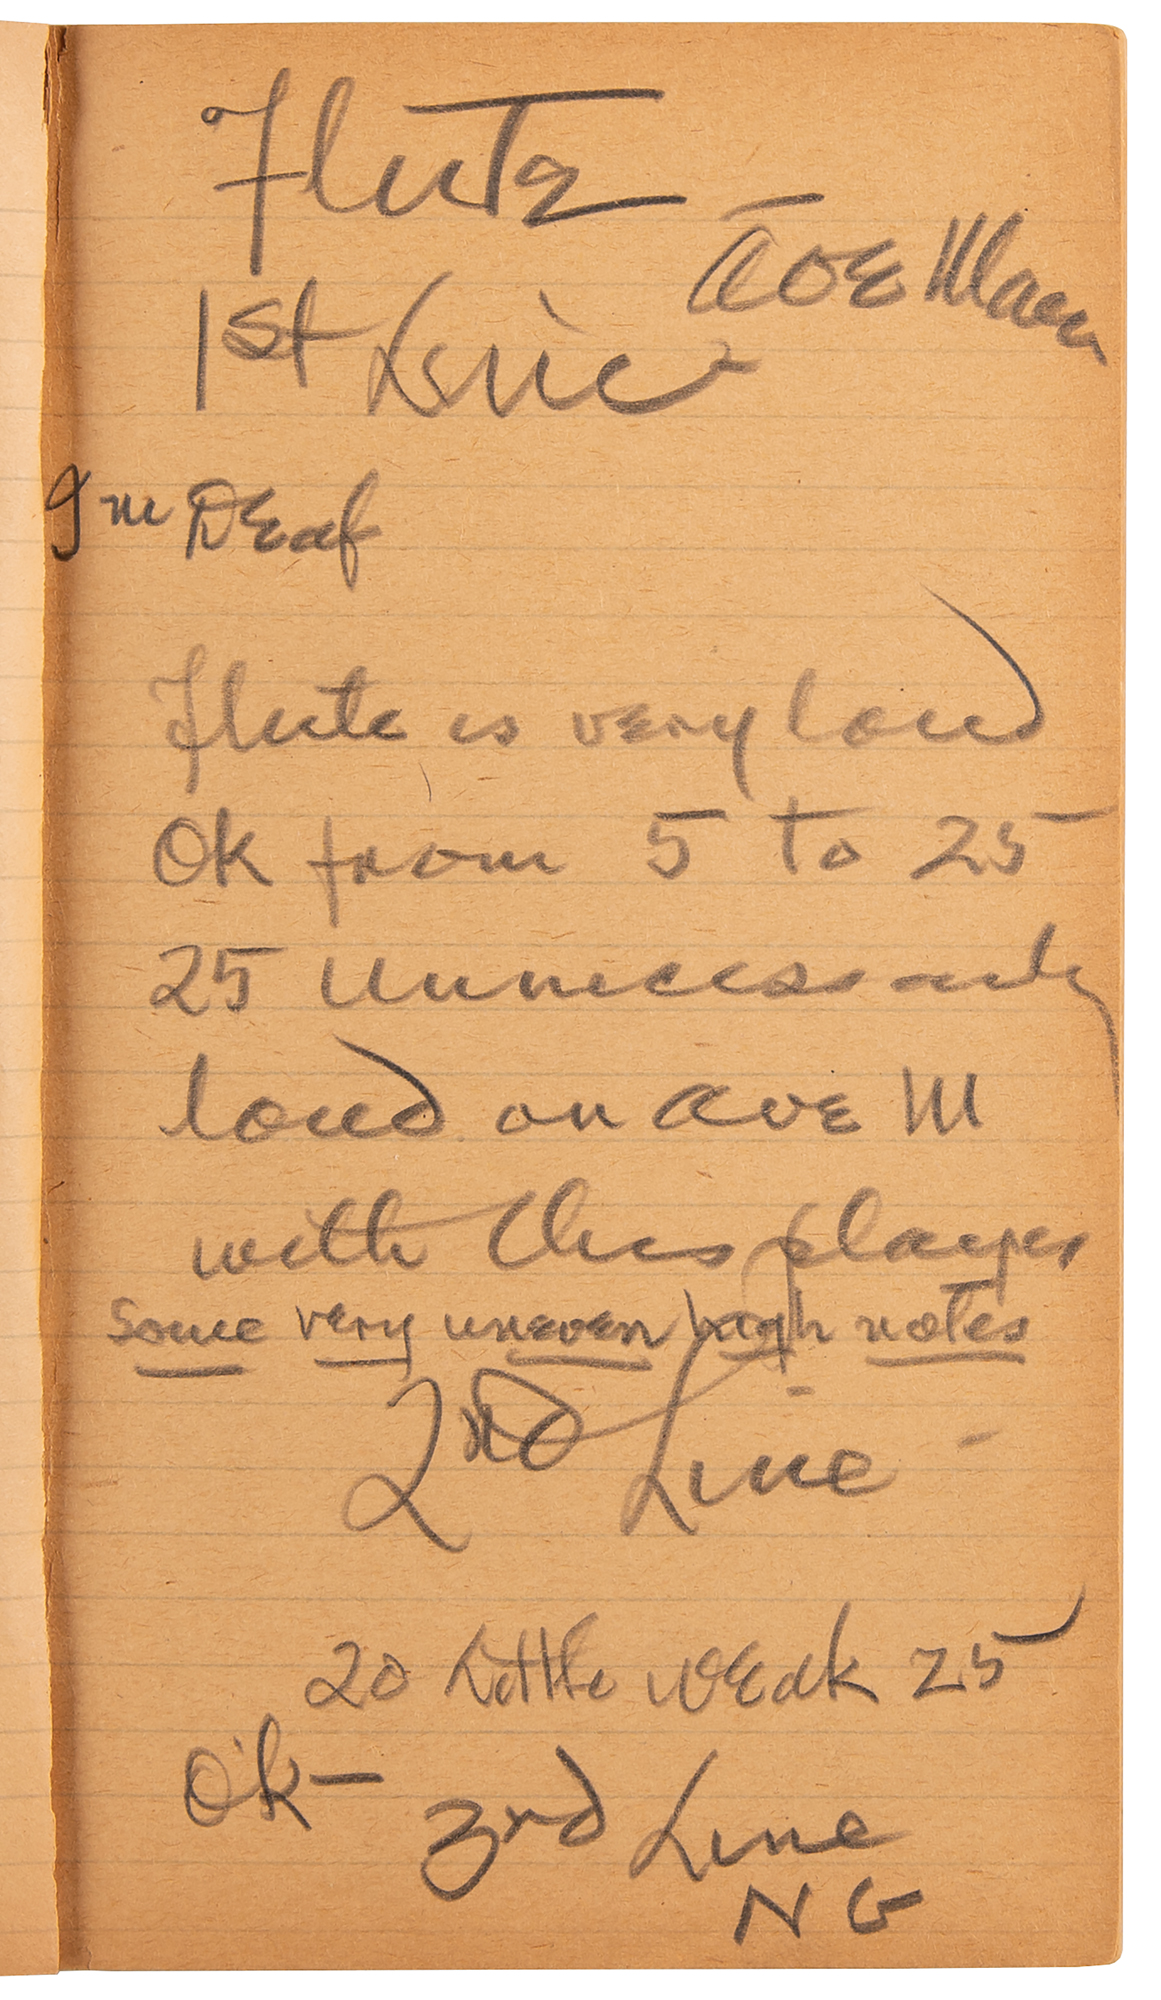 Flute
Ave Maria
1st Line
I'm Deaf
Flute is very loud
Ok from 5 to 25
25 unnecessarily
loud on Ave M
with this player
Some very uneven high notes
2nd Line -
20 little weak 25
Ok — 3rd Line
NG